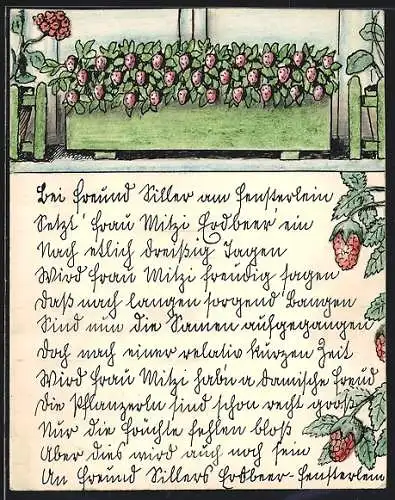 Bei Freund Siller am Fensterlein
Setzt' Frau Mitzi Erdbeer' ein
Nach etlich dreißig Tagen
Wird Frau Mitzi freudig sagen
Daß nach langen sorgend Bangen
Sind nun die Samen aufgegangen
Doch nach einer relativ kurzen Zeit
Wird Frau Mitzi hab'n a damische Freud
Die Pflanzerln sind schon recht groß
Nur die Früchte fehlen bloß
Aber dies wird auch noch sein
An Freund Sillers Erdbeer-Fensterlein